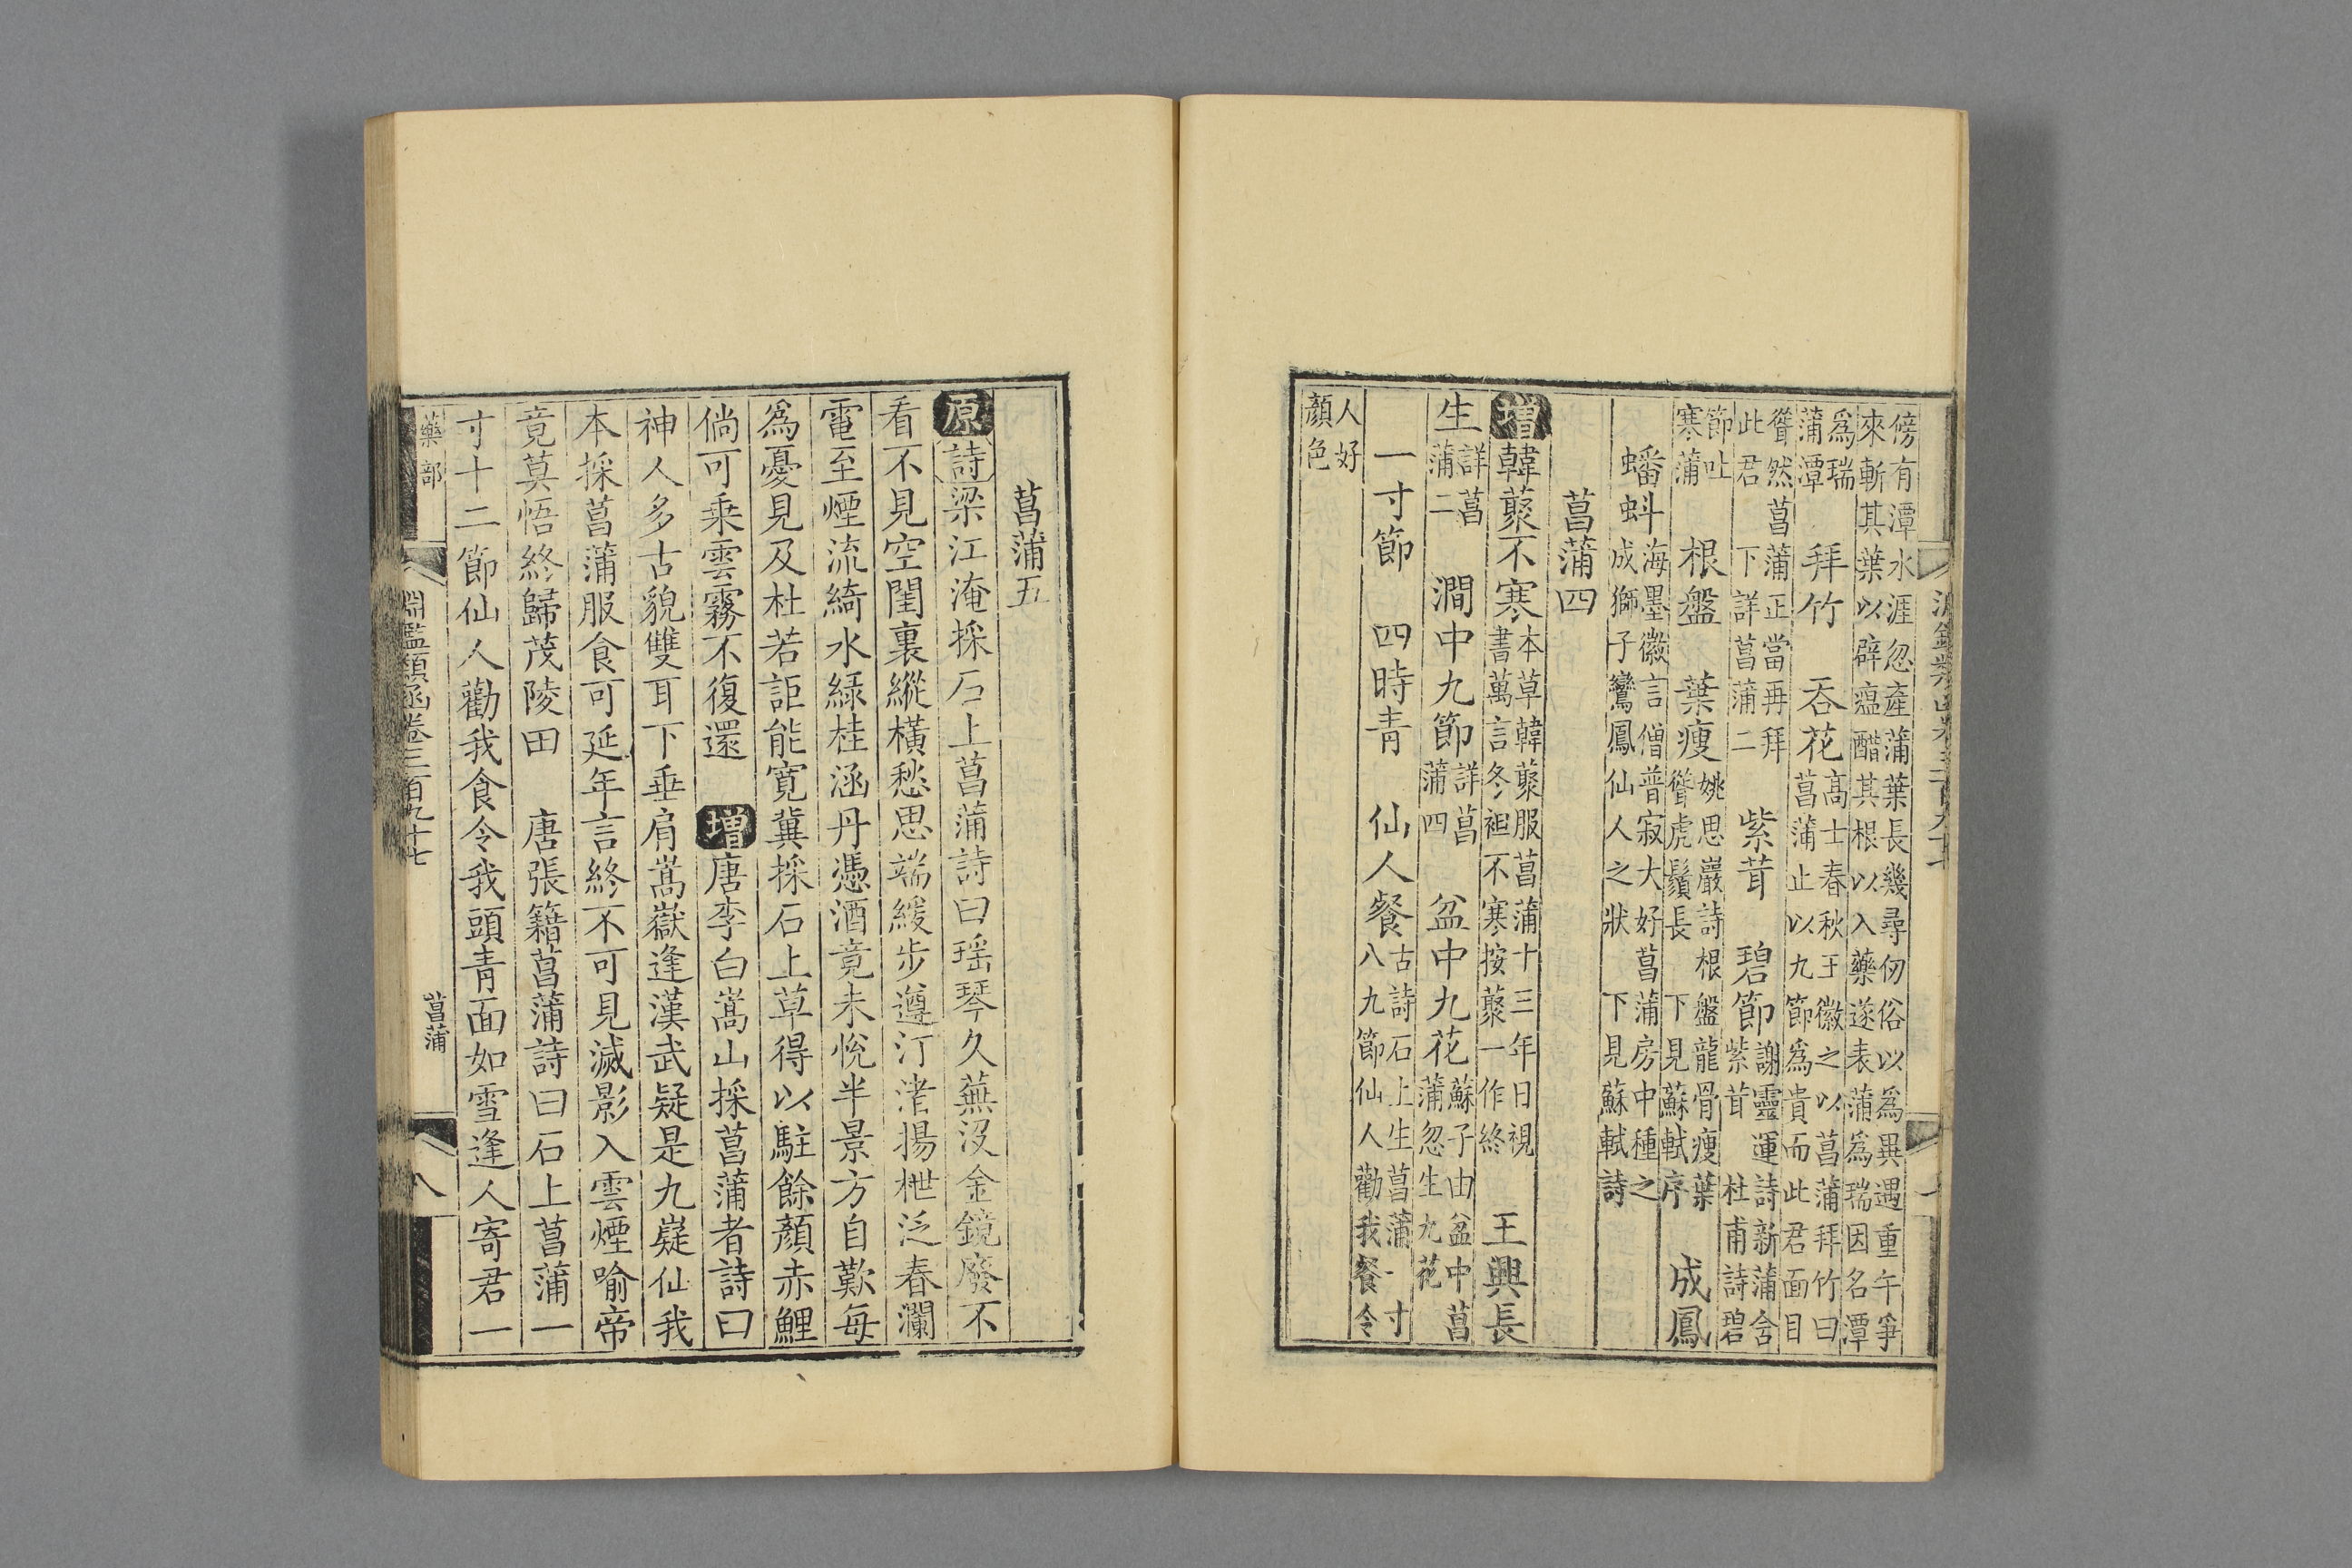 傍有潭水涯忽產蒲葉長幾尋仞俗以為異遇重午爭
來斬其葉以辟瘟醋其根以入藥遂表蒲為瑞因名潭
為瑞
蒲潭
拜竹　吞花
高士春秋王徽之以菖蒲拜竹曰
菖蒲止以九節為貴而此君面目
聳然菖蒲正當再拜
此君　下詳菖蒲二
紫茸　碧節
謝靈運詩新蒲含
紫茸　杜甫詩碧
節吐
寒蒲
根盤　葉瘦
姚思巖詩根盤龍骨瘦葉
聳虎鬚長　下見蘇軾序
成鳳
蟠蚪
海墨徽言僧普寂大好菖蒲房中種之
成獅子鸞鳳仙人之狀　下見蘇軾詩
菖蒲四
增韓藂不寒
本草韓藂服菖蒲十三年日視
書萬言冬袒不寒按藂一作終
王興長
生
詳菖
蒲二
澗中九節
詳菖
蒲四
盆中九花
蘇子由盆中菖
蒲忽生九花
一寸節　四時青　仙人餐
古詩石上生菖蒲一寸
八九節仙人勸我餐令
人好
顏色
菖蒲五
原詩梁江淹採石上菖蒲詩曰瑶琴久蕪沒金鏡廢不
看不見空閨裏縱橫愁思端緩步遵汀渚揚枻泛春瀾
電至煙流綺水綠桂涵丹憑酒竟未悅半景方自歎每
為憂見及杜若詎能寬冀採石上草得以駐餘顏赤鯉
倘可乘雲霧不復還　增唐李白嵩山採菖蒲者詩曰
神人多古貌雙耳下垂肩嵩嶽逢漢武疑是九嶷仙我
本採菖蒲服食可延年言終不可見滅影入雲煙喻帝
竟莫悟終歸茂陵田　唐張籍菖蒲詩曰石上菖蒲一
寸十二節仙人勸我食令我頭青面如雪逢人寄君一
藥部
淵鑑類函卷三百九十七
菖蒲
八